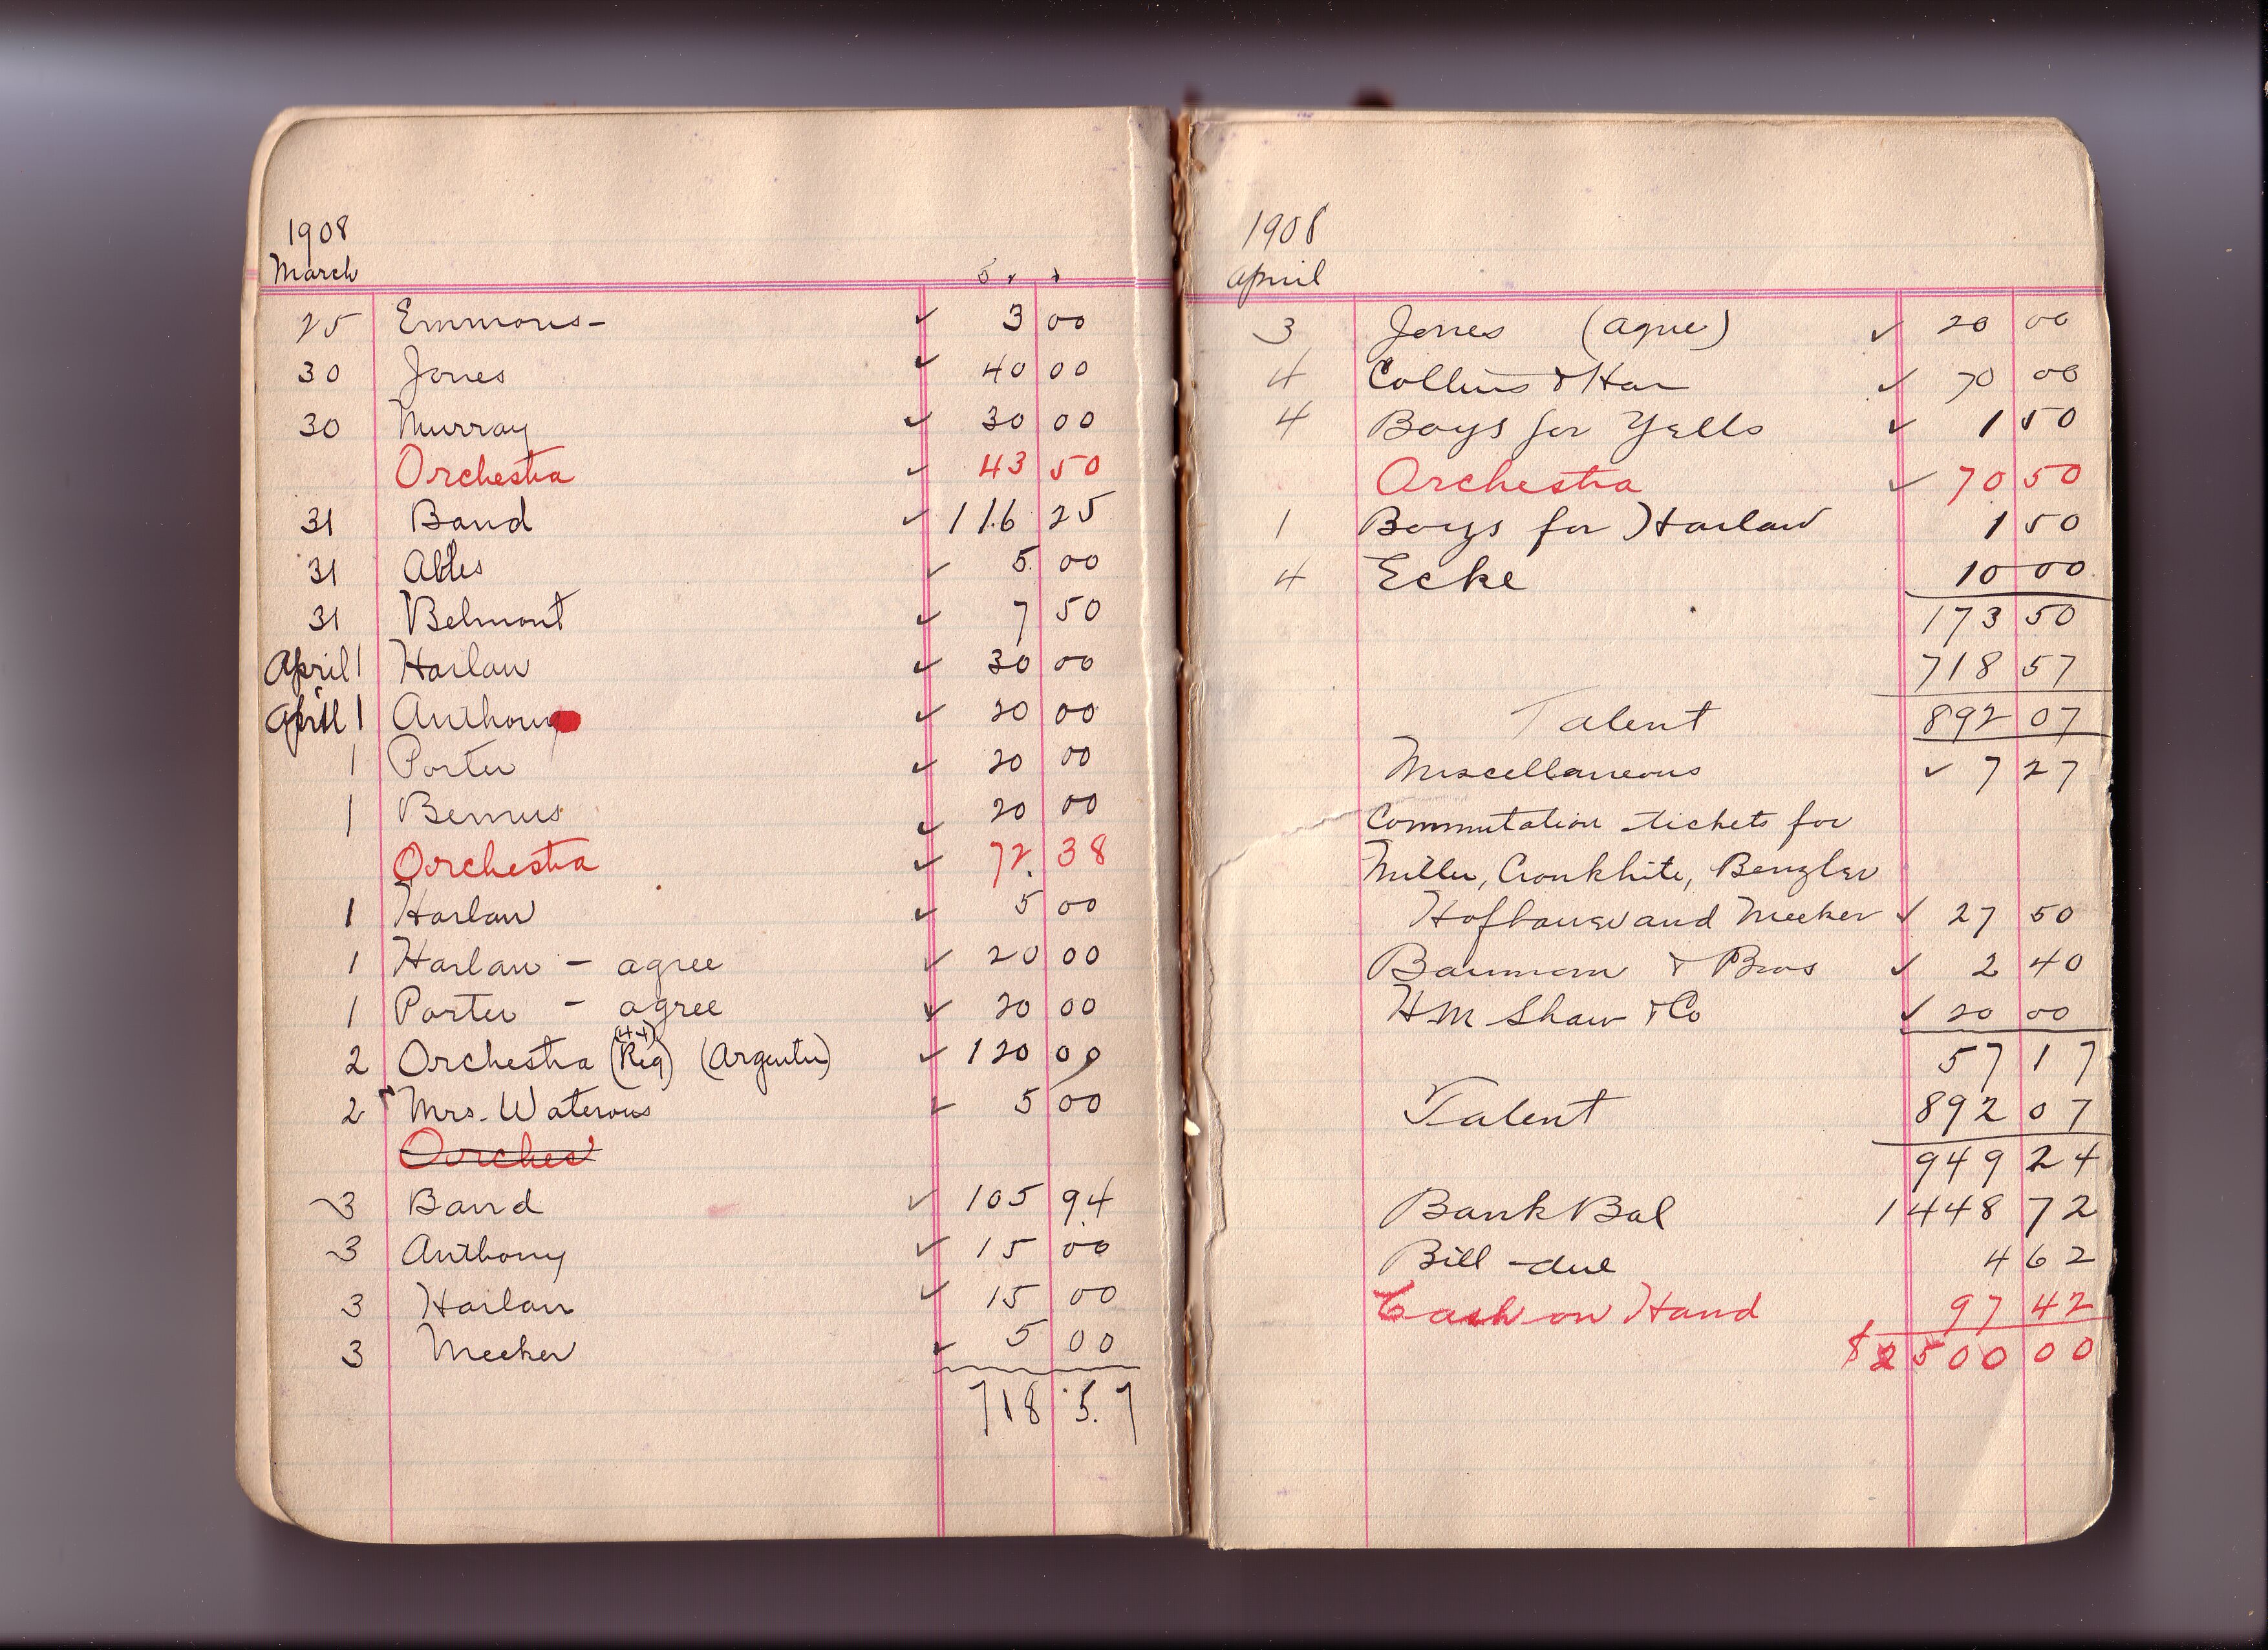 1908
March
25 Emmons- ✓ 3 00
30 Jones ✓ 40 00
30 Murray ✓ 30 00
Orchestra ✓ 43 50
31 Band ✓ 116 25
31 Ables ✓ 5 00
31 Belmont ✓ 7 50
April 1 Harlan ✓ 30 00
April 1 Anthony ✓ 20 00
1 Porter ✓ 20 00
1 Bemus ✓ 20 00
Orchestra ✓ 72.38
1 Harlan ✓ 5 00
1 Harlan - agree ✓ 20 00
1 Porter - agree ✓ 20 00
2 Orchestra (Reg) ✓ 120 00
2 Mrs. Waterous ✓ 5 00
Orches
3 Band ✓ 105 94
3 Anthony ✓ 15 00
3 Harlan ✓ 15 00
3 Meeker ✓ 5 00
718 57
1908
April
3 Jones (agree) ✓ 20 00
4 Collins & Har ✓ 70 00
4 Boys for Yells ✓ 1 50
Orchestra ✓ 70 50
1 Boys for Harlan 1 50
4 Ecke 10 00
173 50
718 57
Talent 892 07
Miscellaneous ✓ 7 27
Commutation tickets for
Miller, Cronkhite, Benzler
Hofbauer and Meeker ✓ 27 50
Baumann & Bros ✓ 2 40
HM Shaw & Co ✓ 20 00
57 17
Talent 892 07
949 24
Bank Bal 1448 72
Bill - due 4 62
Cash on Hand 97 42
$2500 00